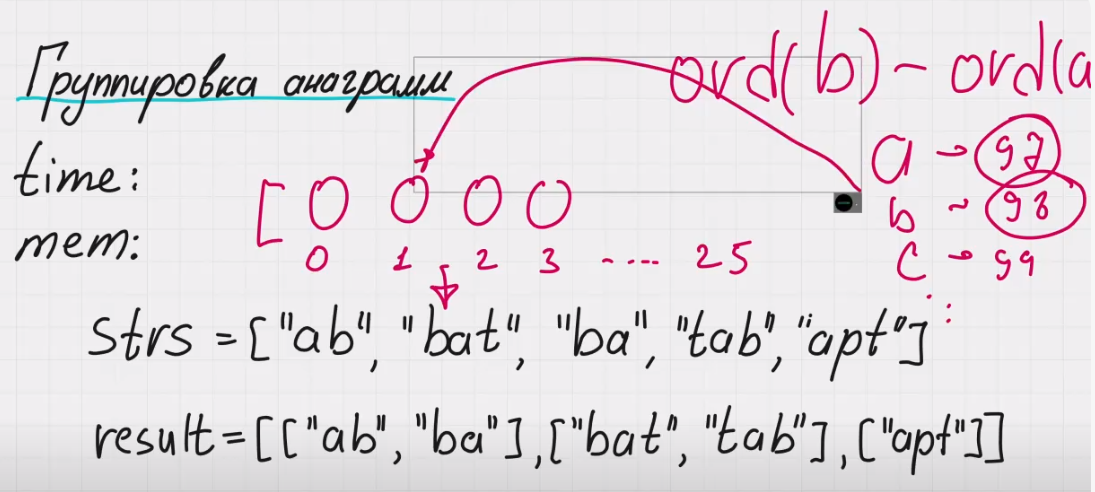 Группировка анаграмм
ord(b) - ord(a
time:
a → 97
[ 0 0 0 0
b ~ 98
mem:
0 1 2 3 ..... 25
c → 99
strs = ["ab", "bat", "ba", "tab", "apt"]
result = [["ab", "ba"], ["bat", "tab"], ["apt"]]